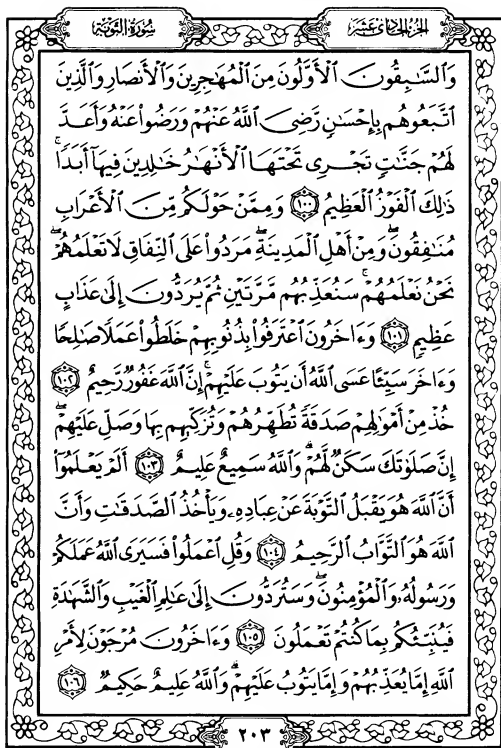 الجزء الحادي عشر
سورة التوبة
وَالسَّٰبِقُونَ الْأَوَّلُونَ مِنَ الْمُهَٰجِرِينَ وَالْأَنصَارِ وَالَّذِينَ
اتَّبَعُوهُم بِإِحْسَٰنٍ رَّضِيَ اللَّهُ عَنْهُمْ وَرَضُوا۟ عَنْهُ وَأَعَدَّ
لَهُمْ جَنَّٰتٍ تَجْرِي تَحْتَهَا الْأَنْهَٰرُ خَٰلِدِينَ فِيهَآ أَبَدًا ۚ
ذَٰلِكَ الْفَوْزُ الْعَظِيمُ ١٠٠ وَمِمَّنْ حَوْلَكُم مِّنَ الْأَعْرَابِ
مُنَٰفِقُونَ ۖ وَمِنْ أَهْلِ الْمَدِينَةِ ۖ مَرَدُوا۟ عَلَى النِّفَاقِ لَا تَعْلَمُهُمْ ۖ
نَحْنُ نَعْلَمُهُمْ ۚ سَنُعَذِّبُهُم مَّرَّتَيْنِ ثُمَّ يُرَدُّونَ إِلَىٰ عَذَابٍ
عَظِيمٍ ١٠١ وَءَاخَرُونَ اعْتَرَفُوا۟ بِذُنُوبِهِمْ خَلَطُوا۟ عَمَلًا صَٰلِحًا
وَءَاخَرَ سَيِّئًا عَسَى اللَّهُ أَن يَتُوبَ عَلَيْهِمْ ۚ إِنَّ اللَّهَ غَفُورٌ رَّحِيمٌ ١٠٢
خُذْ مِنْ أَمْوَٰلِهِمْ صَدَقَةً تُطَهِّرُهُمْ وَتُزَكِّيهِم بِهَا وَصَلِّ عَلَيْهِمْ ۖ
إِنَّ صَلَوٰتَكَ سَكَنٌ لَّهُمْ ۗ وَاللَّهُ سَمِيعٌ عَلِيمٌ ١٠٣ أَلَمْ يَعْلَمُوٓا۟
أَنَّ اللَّهَ هُوَ يَقْبَلُ التَّوْبَةَ عَنْ عِبَادِهِۦ وَيَأْخُذُ الصَّدَقَٰتِ وَأَنَّ
اللَّهَ هُوَ التَّوَّابُ الرَّحِيمُ ١٠٤ وَقُلِ اعْمَلُوا۟ فَسَيَرَى اللَّهُ عَمَلَكُمْ
وَرَسُولُهُۥ وَالْمُؤْمِنُونَ ۖ وَسَتُرَدُّونَ إِلَىٰ عَٰلِمِ الْغَيْبِ وَالشَّهَٰدَةِ
فَيُنَبِّئُكُم بِمَا كُنتُمْ تَعْمَلُونَ ١٠٥ وَءَاخَرُونَ مُرْجَوْنَ لِأَمْرِ
اللَّهِ إِمَّا يُعَذِّبُهُمْ وَإِمَّا يَتُوبُ عَلَيْهِمْ ۗ وَاللَّهُ عَلِيمٌ حَكِيمٌ ١٠٦
٢٠٣